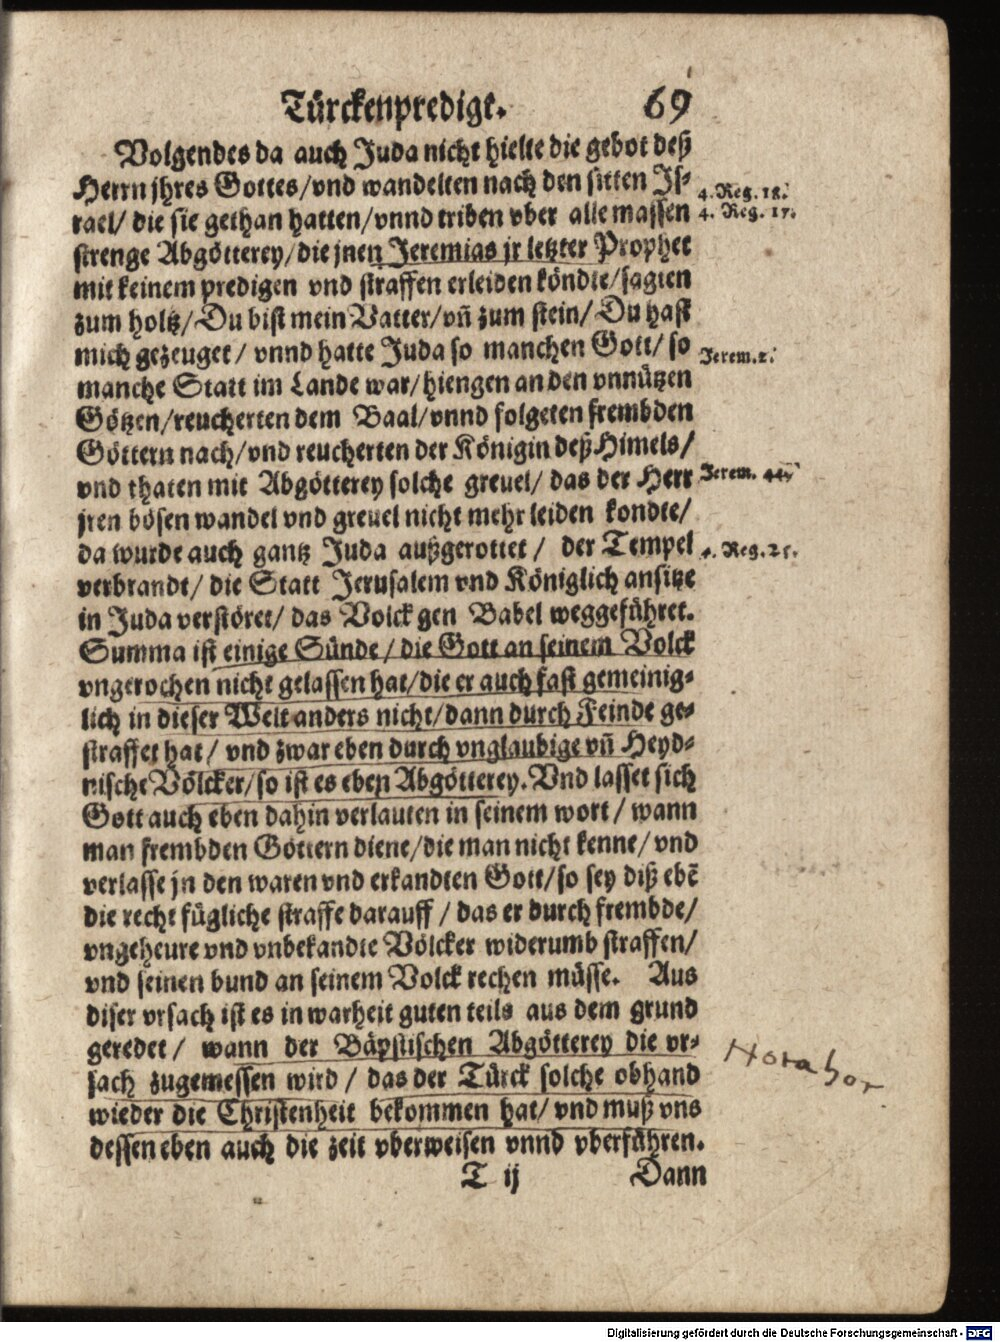 Türckenpredigt. 69
Volgendes da auch Juda nicht hielte die gebot deß
Herrn jhres Gottes/vnd wandelten nach den sitten Is-
4. Reg. 18.
rael/ die sie gethan hatten/vnnd triben vber alle massen
4. Reg. 17.
strenge Abgötterey/die jnen Jeremias jr letzter Prophet
mit keinem predigen vnd straffen erleiden köndte/sagten
zum holtz/Du bist mein Vatter/vñ zum stein/Du hast
mich gezeuget/ vnnd hatte Juda so manchen Gott/ so
Jerem. 2.
manche Statt im Lande war/hiengen an den vnnützen
Götzen/reucherten dem Baal/vnnd folgeten frembden
Göttern nach/vnd reucherten der Königin deß Himels/
vnd thaten mit Abgötterey solche greuel/ das der Herr
Jerem. 44.
jren bösen wandel vnd greuel nicht mehr leiden kondte/
da wurde auch gantz Juda außgerottet/ der Tempel
4. Reg. 25.
verbrandt/ die Statt Jerusalem vnd Königlich ansitze
in Juda verstöret/ das Volck gen Babel weggeführet.
Summa ist einige Sünde/die Gott an seinem Volck
vngerochen nicht gelassen hat/die er auch fast gemeinig-
lich in dieser Welt anders nicht/dann durch Feinde ge-
straffet hat/ vnd zwar eben durch vnglaubige vñ Heyd-
nische Völcker/so ist es eben Abgötterey. Vnd lasset sich
Gott auch eben dahin verlauten in seinem wort/ wann
man frembden Göttern diene/die man nicht kenne/ vnd
verlasse jn den waren vnd erkandten Gott/so sey diß ebẽ
die recht fügliche straffe darauff/ das er durch frembde/
vngeheure vnd vnbekandte Völcker widerumb straffen/
vnd seinen bund an seinem Volck rechen müsse. Aus
diser vrsach ist es in warheit guten teils aus dem grund
geredet/ wann der Bäpstischen Abgötterey die vr-
sach zugemessen wird/ das der Türck solche obhand
wieder die Christenheit bekommen hat/ vnd muß vns
dessen eben auch die zeit vberweisen vnnd vberführen.
T ij Dann
Digitalisierung gefördert durch die Deutsche Forschungsgemeinschaft - DFG